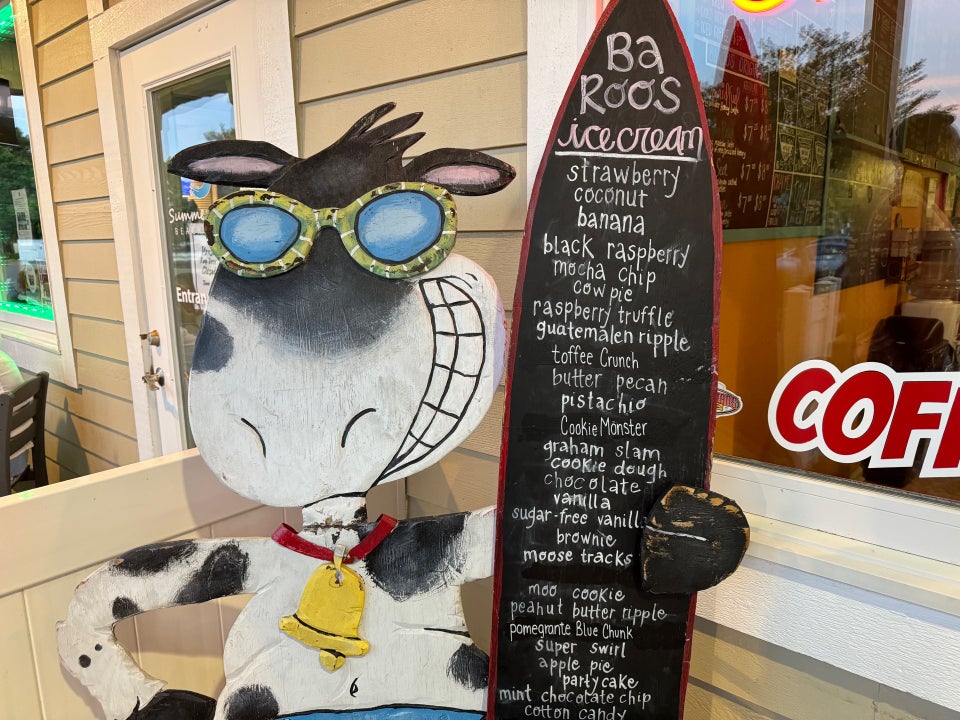 Ba
Roos
ice cream
strawberry
coconut
banana
black raspberry
mocha chip
cow pie
raspberry truffle
guatemalen ripple
toffee Crunch
butter pecan
pistachio
Cookie Monster
graham slam
cookie dough
chocolate
vanilla
sugar-free vanill
brownie
moose tracks
moo cookie
peanut butter ripple
pomegrante Blue Chunk
super swirl
apple pie
party cake
mint chocolate chip
cotton candy
Summe
BEA
Entran
COF